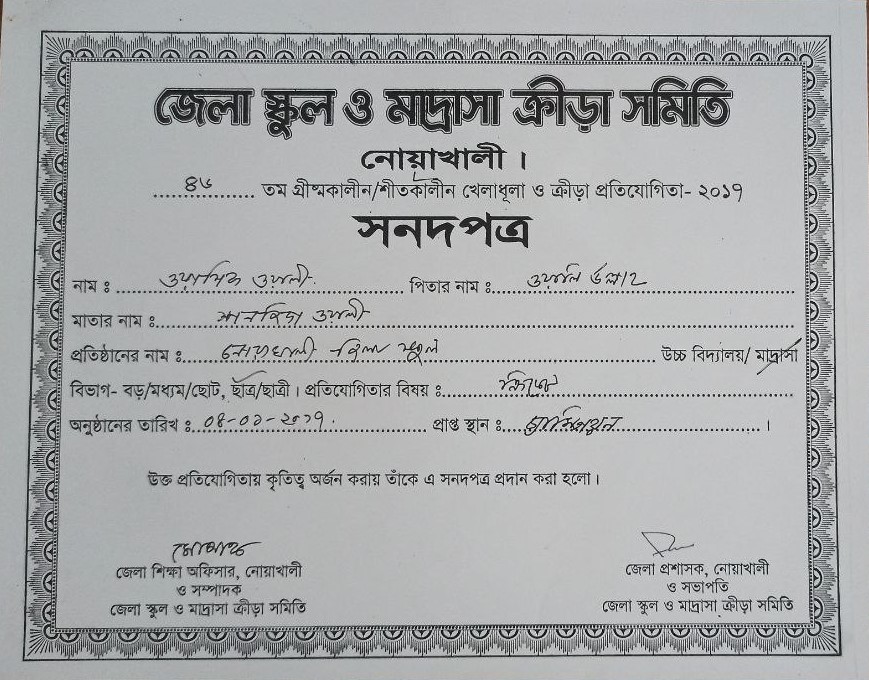 জেলা স্কুল ও মাদ্রাসা ক্রীড়া সমিতি
নোয়াখালী ।
৪৬ তম গ্রীষ্মকালীন/শীতকালীন খেলাধূলা ও ক্রীড়া প্রতিযোগিতা- ২০১৭
সনদপত্র
নাম ঃ ওয়াসিক ওয়ালী পিতার নাম ঃ ওয়ালি উল্লাহ
মাতার নাম ঃ ওয়ালী
প্রতিষ্ঠানের নাম ঃ নোয়াখালী জিলা স্কুল উচ্চ বিদ্যালয়/ মাদ্রাসা
বিভাগ- বড়/মধ্যম/ছোট, ছাত্র/ছাত্রী । প্রতিযোগিতার বিষয় ঃ ক্রিকেট
অনুষ্ঠানের তারিখ ঃ ০৪-০২-২০১৭ প্রাপ্ত স্থান ঃ চ্যাম্পিয়ন ।
উক্ত প্রতিযোগিতায় কৃতিত্ব অর্জন করায় তাঁকে এ সনদপত্র প্রদান করা হলো ।
জেলা শিক্ষা অফিসার, নোয়াখালী
ও সম্পাদক
জেলা স্কুল ও মাদ্রাসা ক্রীড়া সমিতি
জেলা প্রশাসক, নোয়াখালী
ও সভাপতি
জেলা স্কুল ও মাদ্রাসা ক্রীড়া সমিতি